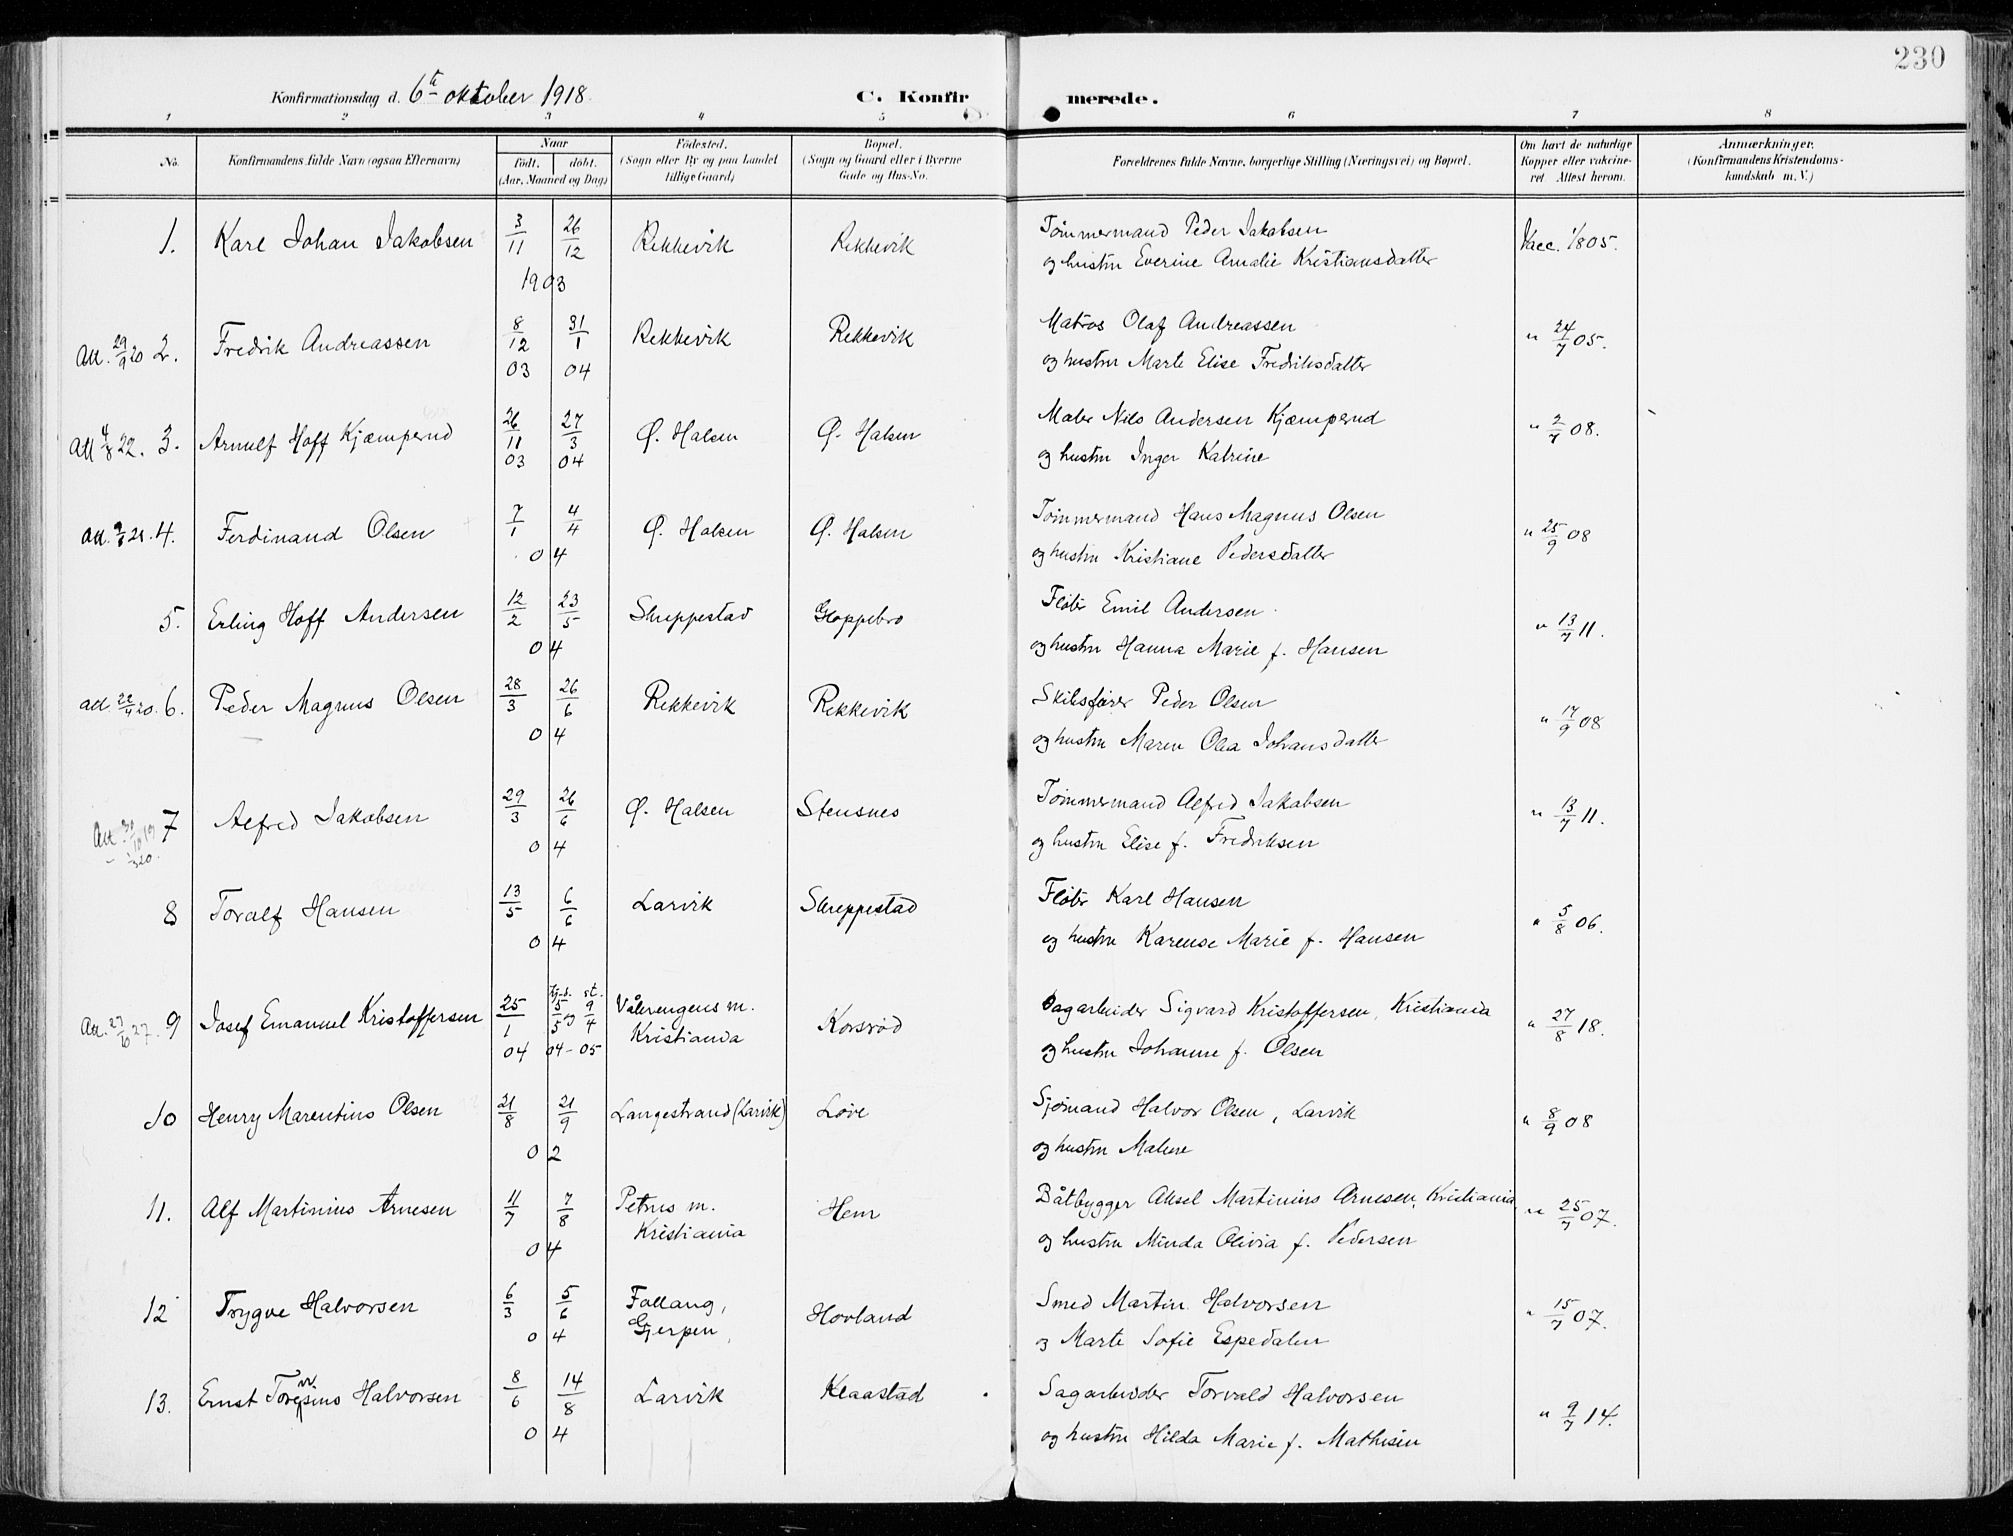 230
Konfirmationsdag d. 6te oktober 1918.
C. Konfirmerede.
1 2 3 4 5 6 7 8
No.
Konfirmandens fulde Navn (ogsaa Efternavn)
Naar
födt. döbt.
(Aar, Maaned og Dag)
Födested.
(Sogn eller By og paa Landet
tillige Gaard)
Bopæl.
(Sogn og Gaard eller i Byerne
Gade og Hus-No.
Forældrenes fulde Navne, borgerlige Stilling (Næringsvei) og Bopæl.
Om havt de naturlige
Kopper eller vaccineret. Attest herom.
Anmærkninger.
(Konfirmandens Kristendomskundskab m. V.)
1. Karl Johan Jakobsen 3/11 26/12 Rekkevik Rekkevik Tømmermand Peder Jakobsen Vacc. 1/8 05.
1903 og hustru Everine Amalie Kristiansdatter
Att. 29/9 20 2. Fredrik Andreassen 8/12 31/1 Rekkevik Rekkevik Matros Olaf Andreassen " 24/7 05.
03 04 og hustru Marte Elise Fredriksdatter
Att 4/8 22. 3. Arnulf Hoff Kjæmperud 26/11 27/3 Ø. Halsen Ø. Halsen Maler Nils Andersen Kjæmperud " 2/7 08.
03 04 og hustru Inger Katrine
Att. 4. Ferdinand Olsen 7/1 4/4 Ø. Halsen Ø. Halsen Tømmermand Hans Magnus Olsen " 25/9 08
04 og hustru Kristiane Pedersdatter
5. Erling Hoff Andersen 12/2 23/5 Skreppestad Gloppebro Fløter Emil Andersen " 13/7 11.
04 og hustru Hanna Marie f. Hansen
Att. 22/4 20. 6. Peder Magnus Olsen 28/3 26/6 Rekkevik Rekkevik Skibsfører Peder Olsen " 17/9 08
04 og hustru Maren Olea Johansdatter
Att. 7 Alfred Jakobsen 29/3 26/6 Ø. Halsen Stensnes Tømmermand Alfred Jakobsen " 13/7 11.
04 og hustru Elise f. Fredriksen
8 Toralf Hansen 13/5 6/6 Larvik Skreppestad Fløter Karl Hansen " 5/8 06.
04 og hustru Karense Marie f. Hansen
Att. 27/10 27. 9 Josef Emanuel Kristoffersen 25/1 hj.d. 5/5 og st. 9/4 Vålerengens m. Korsrød Dagarbeider Sigvard Kristoffersen, Kristiania " 27/8 18.
04 04-05 Kristiania og hustru Johanne f. Olsen
10 Henry Marentius Olsen 21/8 21/9 Langestrand (Larvik) Løve Sjømand Halvor Olsen, Larvik " 8/9 08
02 og hustru Malene
11. Alf Martinius Arnesen 11/7 7/8 Petrus m. Hem Båtbygger Aksel Martinius Arnesen, Kristiania " 25/7 07.
04 Kristiania og hustru Minda Olivia f. Pedersen
12 Trygve Halvorsen 6/3 5/6 Follang, Hovland Smed Martin Halvorsen " 15/7 07.
04 Gjerpen og Marte Sofie Espedalen
13. Ernst Halvorsen 8/6 14/8 Larvik Klaastad Sagarbeider Torvald Halvorsen " 9/7 14.
04 og hustru Hilda Marie f. Mathisen